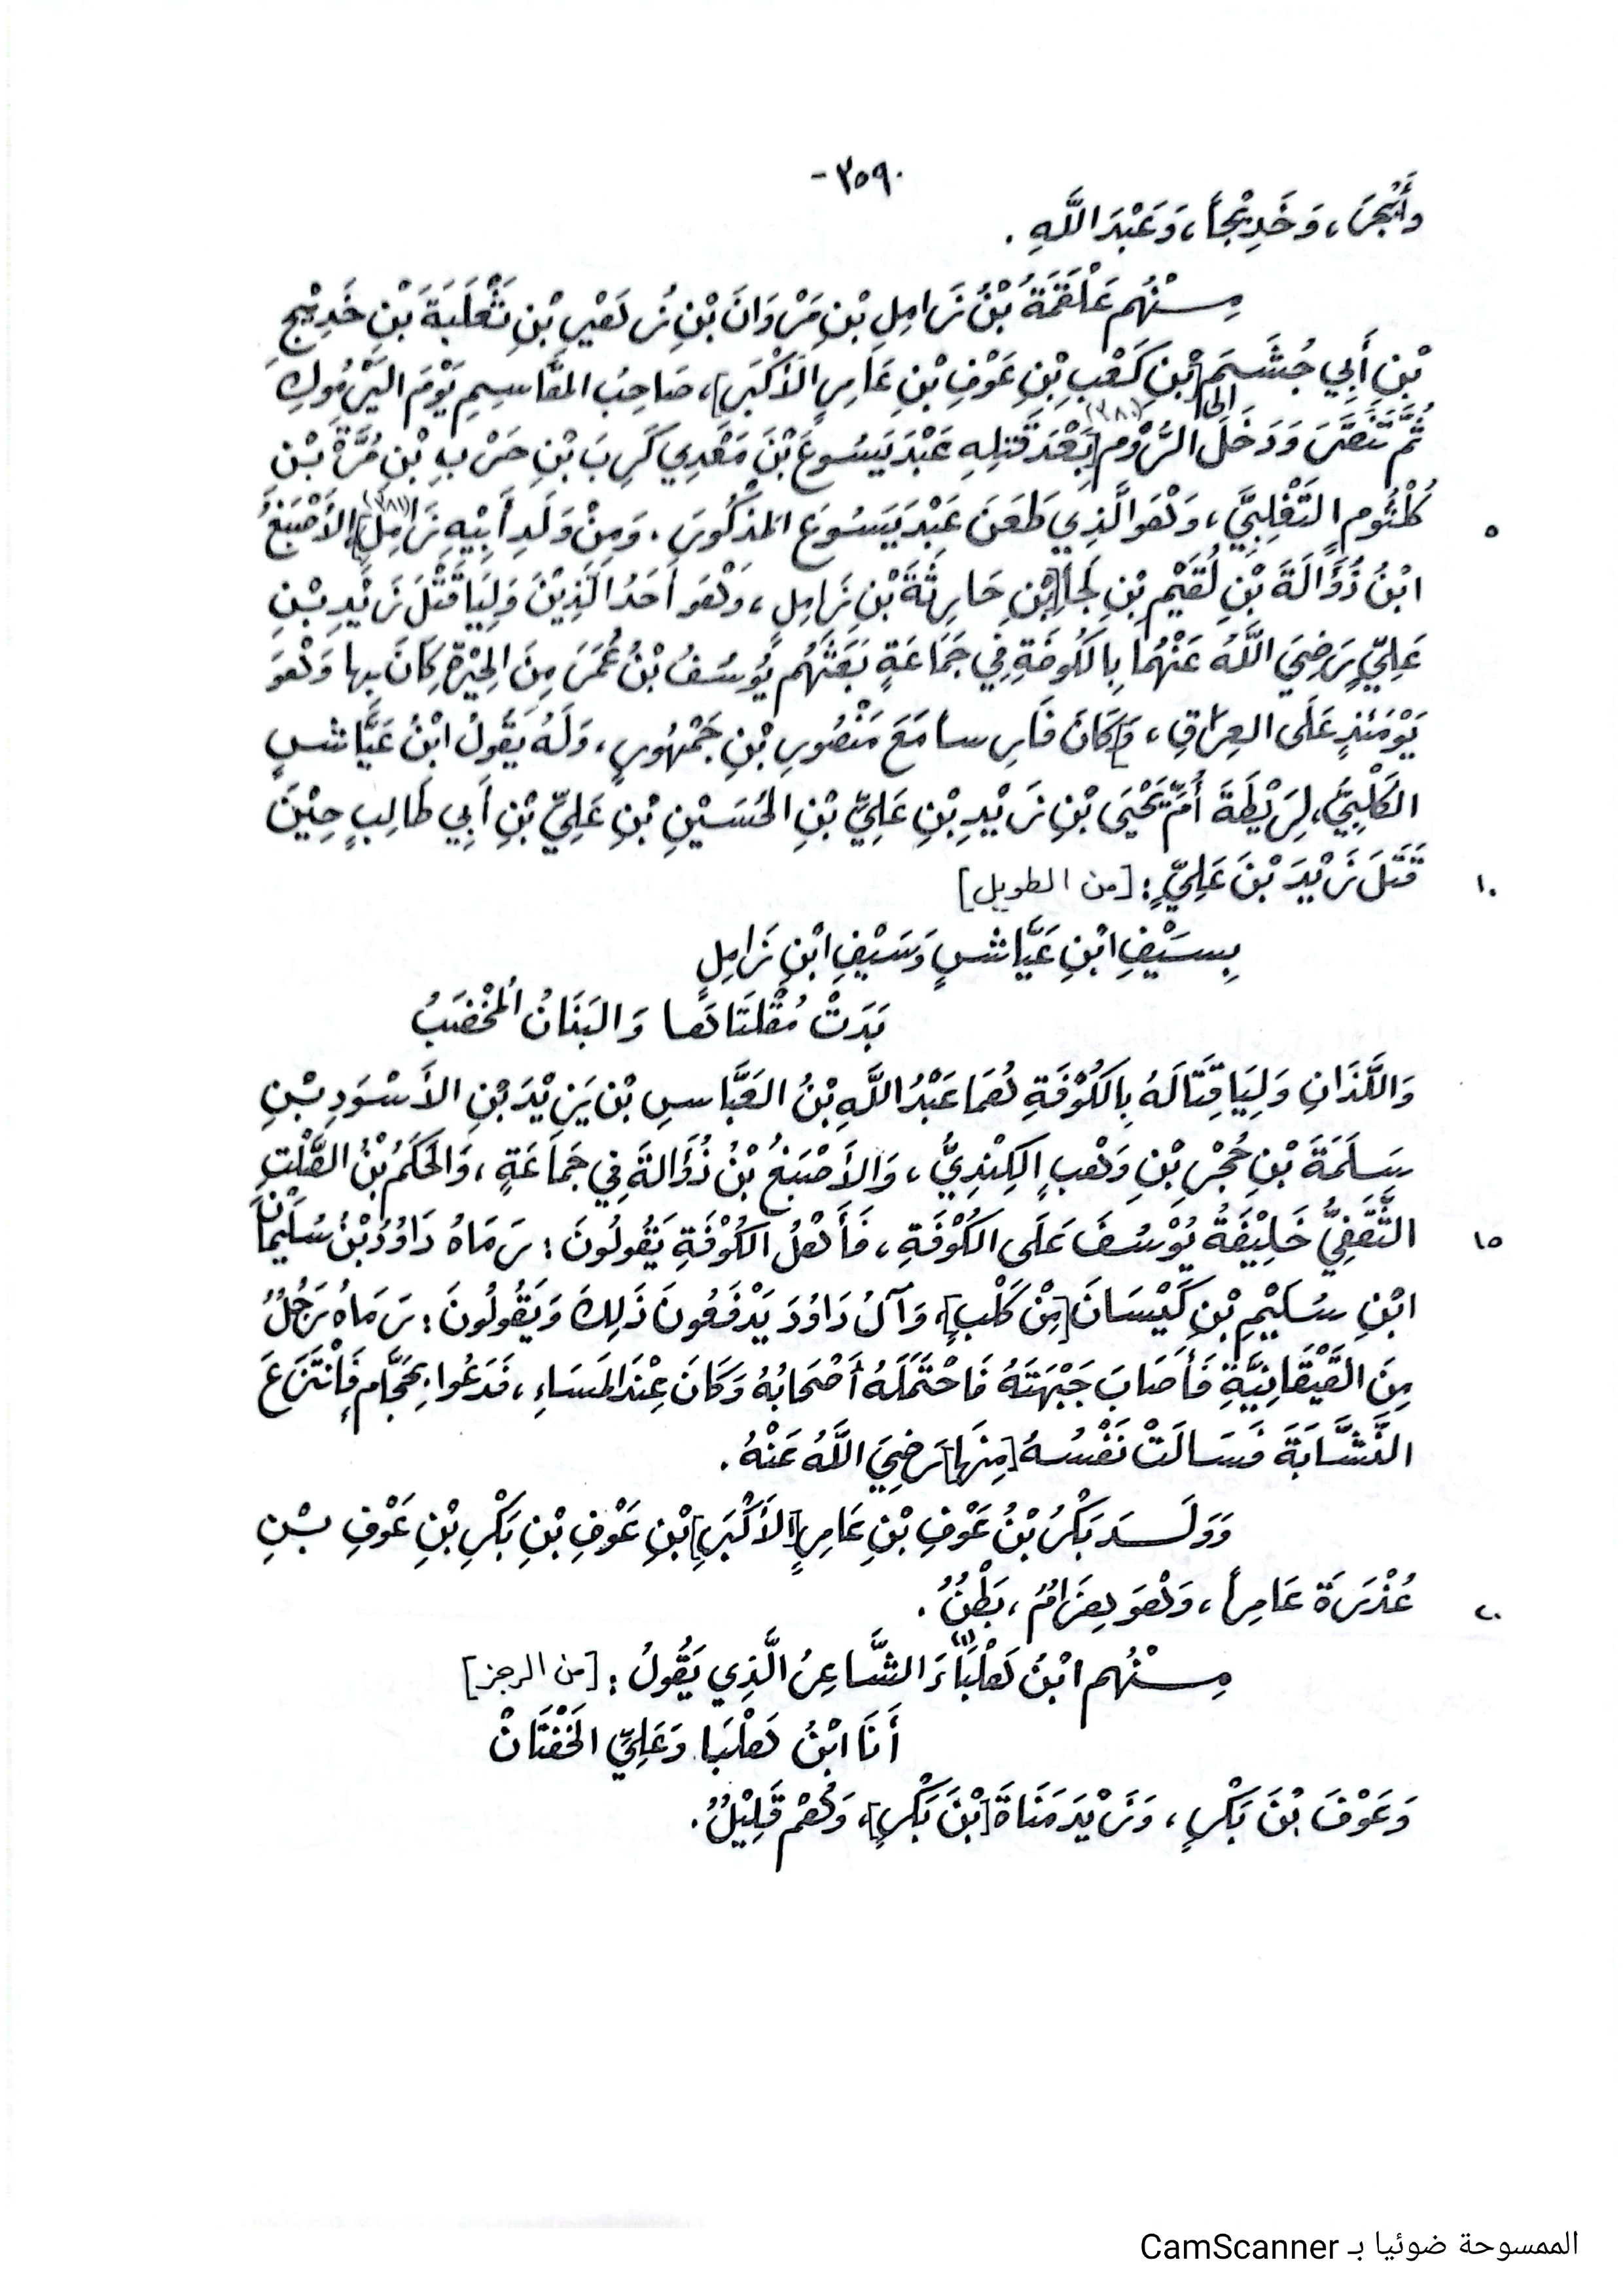 -٣٥٩-
وَأَبْجَرَ، وَخَدِيْجاً، وَعَبْدَ اللَّهِ.
مِــنْهُم عَلْقَمَةُ بْنُ زَامِلِ بْنِ مَرْوَانَ بْنِ زُهَيْرِ بْنِ ثَعْلَبَةَ بْنِ خَدِيْجِ
بْنِ أَبِي جُشَــمَ [بْنِ كَعْبِ بْنِ عَوْفِ بْنِ عَامِرٍ الأَكْبَرِ]، صَاحِبُ المَقَاسِـمِ يَوْمَ اليَرْمُوكِ
ثُمَّ تَنَصَّرَ وَدَخَلَ إلى الرُّوْمِ [بَعْدَ قَتْلِهِ (٣٨٠) عَبْدَ يَسُوعَ بْنَ مَعْدِي كَرِبَ بْنِ حَرْبِ بْنِ مُرَّةَ بْـنِ
٥ كُلْثُومٍ التَّغْلِبِيَّ، وَهْوَ الَّذِي طَعَنَ عَبْدَ يَسُوعَ المَذْكُورَ. وَمِنْ وَلَدِ أَبِيْهِ زَامِلٍ] (٣٨١) الأَصْبَغُ
ابْنُ ذُؤَالَةَ بْنِ لُقَيْمِ بْنِ لَجَأ [بْنِ حَارِثَةَ بْنِ زَامِلٍ، وَهْوَ أَحَدُ الَّذِيْنَ وَلِيَا قَتْلَ زَيْدِ بْـنِ
عَلِيٍّ رَضِيَ اللَّهُ عَنْهُمَا بِالكُوفَةِ فِي جَمَاعَةٍ بَعَثَهُم يُوسُفُ بْنُ عُمَرَ مِنَ الحِيْرَةِ كَانَ بِها وَهْوَ
يَوْمَئِذٍ عَلَى العِرَاقِ، وَ]كَانَ فَارِسـاً مَعَ مَنْصُورِ بْنِ جَمْهُورٍ، وَلَهُ يَقُولُ ابْنُ عَيَّاشٍ
الكَلْبِيُّ، لِرَيْطَةَ أُمِّ يَحْيَى بْنِ زَيْدِ بْنِ عَلِيِّ بْنِ الحُسَيْنِ بْنِ عَلِيِّ بْنِ أَبِي طَالِبٍ حِيْنَ
١٠ قَتَلَ زَيْدَ بْنَ عَلِيٍّ: [من الطويل]
بِسَيْفِ ابْنِ عَيَّاشٍ وَسَيْفِ ابْنِ زَامِلٍ
بَدَتْ مُقْلَتَاهَا وَالبَنَانُ المُخَضَّبُ
وَاللَّذَانِ وَلِيَا قِتَالَهُ بِالكُوْفَةِ هُمَا عَبْدُ اللَّهِ بْنُ العَبَّاسِ بْنِ يَزِيْدَ بْنِ الأَسْوَدِ بْـنِ
سَـلَمَةَ بْنِ حُجْرِ بْنِ وَهْبٍ الكِنْدِيُّ، وَالأَصْبَغُ بْنُ ذُؤَالَةَ فِي جَمَاعَةٍ، وَالحَكَمُ بْنُ الصَّلْتِ
١٥ الثَّقَفِيُّ خَلِيْفَةُ يُوْسُفَ عَلَى الكُوْفَةِ، فَأَهْلُ الكُوْفَةِ يَقُولُونَ: رَمَاهُ دَاوُدُ بْنُ سُلَيْمَانَ
ابْنِ سُلَيْمِ بْنِ كَيْسَانَ [مِنْ كَلْبٍ]، وَآلُ دَاوُدَ يَدْفَعُونَ ذَلِكَ وَيَقُولُونَ: رَمَاهُ رَجُلٌ
مِنَ القَيْقَانِيَّةِ فَأَصَابَ جَبْهَتَهُ فَاحْتَمَلَهُ أَصْحَابُهُ وَكَانَ عِنْدَ المَسَاءِ، فَدَعُوا بِحَجَّامٍ فَانْتَزَعَ
النَّشَّابَةَ فَسَالَتْ نَفْسُهُ [مِنْهَا] رَضِيَ اللَّهُ عَنْهُ.
وَوَلَــدَ بَكْرُ بْنُ عَوْفِ بْنِ عَامِرٍ [الأَكْبَرِ] بْنِ عَوْفِ بْنِ بَكْرِ بْنِ عَوْفِ بْـنِ
٢٠ عُذْرَةَ عَامِراً، وَهْوَ هِزَامٌ، بَطْنٌ.
مِــنْهُم ابْنُ هَلْبَاءَ (١) الشَّاعِرُ الَّذِي يَقُولُ: [من الرجز]
أَنَا ابْنُ هَلْبَا وَعَلِيِّ الخَفْتَانْ
وَعَوْفَ بْنَ بَكْرٍ، وَزَيْدَ مَنَاةَ [بْنَ بَكْرٍ]، وَهُمْ قَلِيْلٌ.
الممسوحة ضوئيا بـ CamScanner